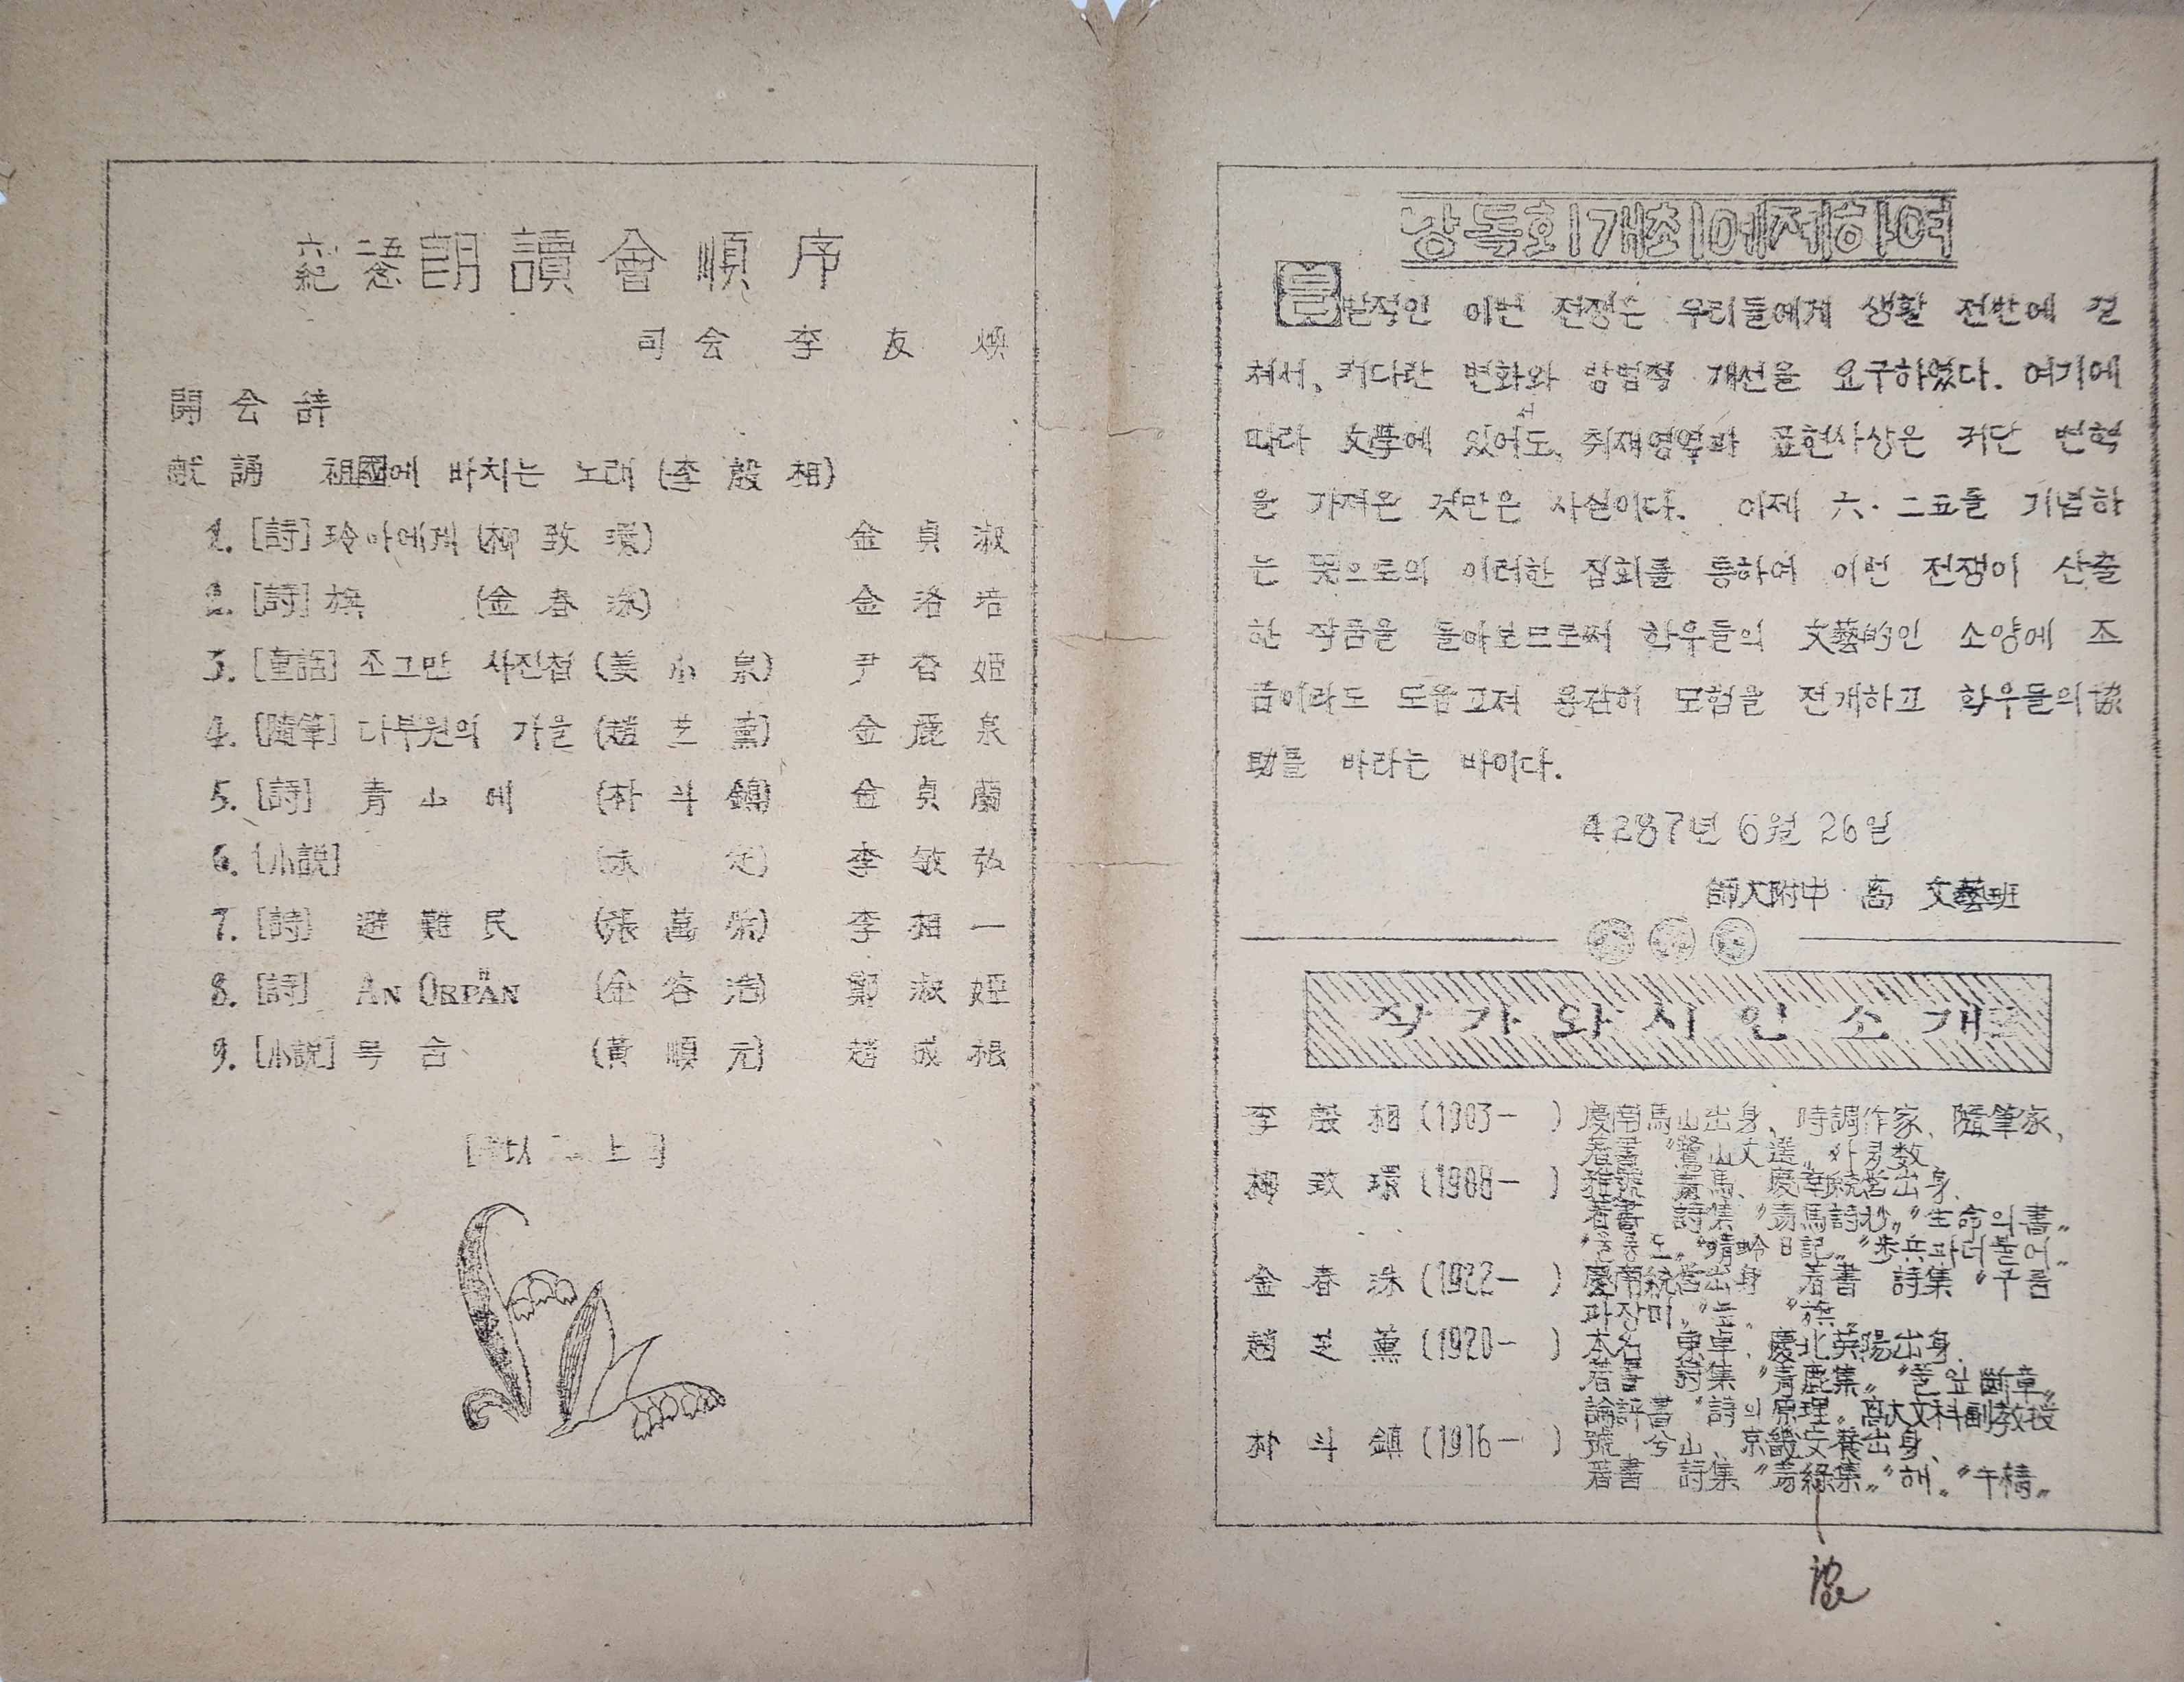 六·二五紀念 朗讀會順序
司会 李友煥
開会辞
献誦 祖國에 바치는 노래 (李殷相)
1. [詩] 玲아에게 (柳致環) 金貞淑
2. [詩] 旗 (金春洙) 金洛培
3. [童話] 조그만 사진첩 (姜小泉) 尹杏姬
4. [隨筆] 다부원의 가을 (趙芝薰) 金鹿泉
5. [詩] 靑山에 (朴斗鎭) 金貞蘭
6. [小説] (未定) 李敏弘
7. [詩] 避難民 (張萬榮) 李相一
8. [詩] AN ORPAN H (金容浩) 鄭淑姬
9. [小説] (黃順元) 趙成根
以上
낭독회 개최에 제하여
돌발적인 이번 전쟁은 우리들에게 생활 전반에 걸
쳐서, 커다란 변화와 방법적 개선을 요구하였다. 여기에
따라 文學에 있어서도, 취재영역과 표현사상은 커단 변혁
을 가져온 것만은 사실이다. 이제 六·二五를 기념하
는 뜻으로의 이러한 집회를 통하여 이런 전쟁이 산출
한 작품을 돌아보므로써 학우들의 文藝的인 소양에 조
금이라도 도웁고저 용감히 모험을 전개하고 학우들의 協
助를 바라는 바이다.
4287년 6월 26일
師大附中 高 文藝班
작가와 시인 소개
李殷相 (1903— ) 慶南馬山出身、時調作家、隨筆家、
著書 〝鷺山文選〟外多数
柳致環 (1908— ) 雅號 靑馬、慶南統営出身、
著書 詩集 〝靑馬詩抄〟〝生命의書〟
〝울릉도〟〝蜻蛉日記〟〝步兵과더불어〟
金春洙 (1922— ) 慶南統営出身 著書 詩集 〝구름
과장미〟〝늪〟〝旗〟
趙芝薰 (1920— ) 本名 東卓、慶北英陽出身、
著書 詩集 〝靑鹿集〟〝풀잎斷章〟
論評書 〝詩의原理〟高大文科副敎授
朴斗鎭 (1916— ) 號 兮山、京畿安養出身、
著書 詩集 〝靑綠集〟〝해〟〝午禱〟